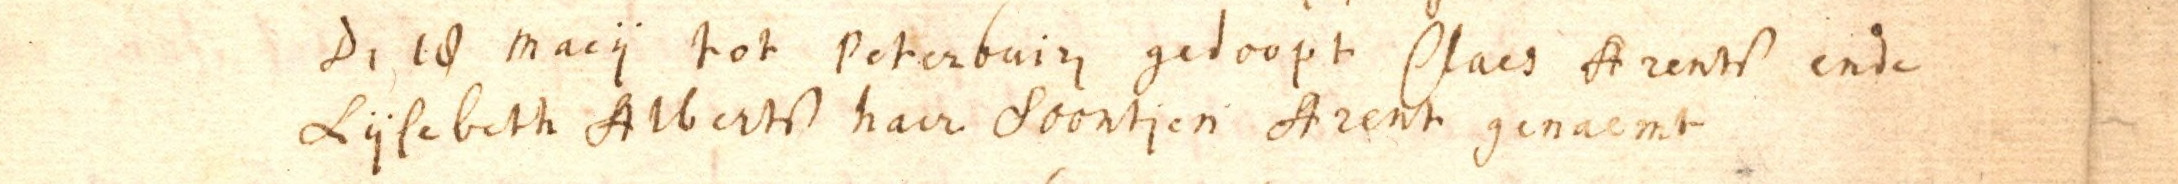 D. 18 Maeij tot Peterbuirn gedoopt Claes Arents ende
Lijsebeth Alberts haer Soontjen Arent genaemt